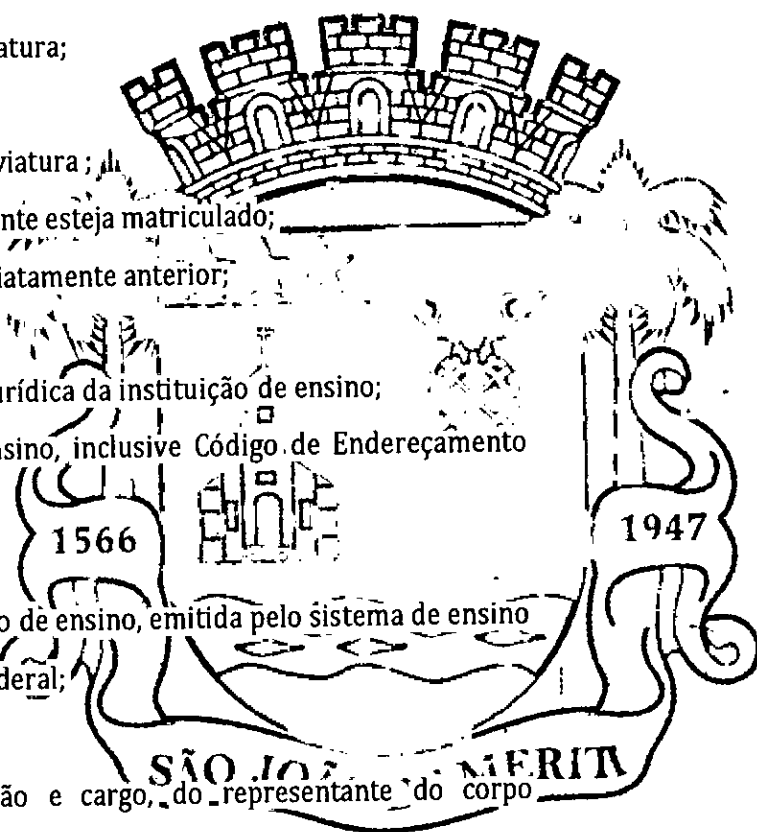 atura;
viatura;
nte esteja matriculado;
iatamente anterior;
urídica da instituição de ensino;
nsino, inclusive Código de Endereçamento
1566
1947
o de ensino, emitida pelo sistema de ensino
deral;
SÃO JOÃO MERITI
ão e cargo, do representante do corpo